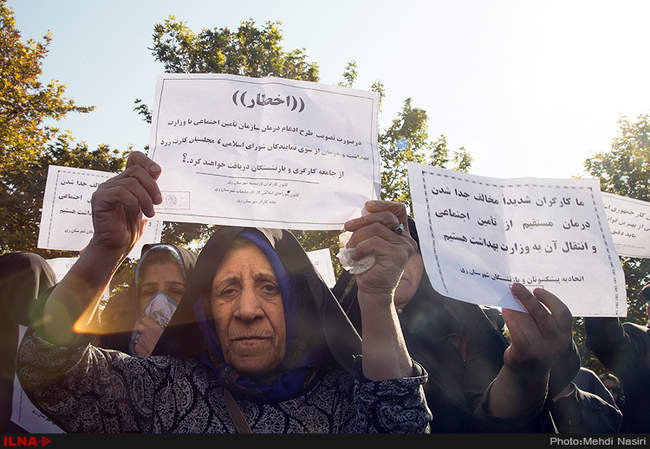 ((اخطار))
درصورت تصویب طرح ادغام درمان سازمان تأمین اجتماعی با وزارت
بهداشت و درمان از سوی نمایندگان شورای اسلامی، مجلسیان کارت زرد
از جامعه کارگری و بازنشستگان دریافت خواهند کرد.؟
کانون کارگران بازنشسته شهرستان ری
شهرستان ری
خانه کارگر شهرستان ری
ما کارگران شدیدا مخالف جدا شدن
درمان مستقیم از تأمین اجتماعی
و انتقال آن به وزارت بهداشت هستیم
اتحادیه پیشکسوتان و بازنشستگان شهرستان ری
جدا شدن
اجتماعی
هستیم
جمهوری
ILNA
Photo:Mehdi Nasiri